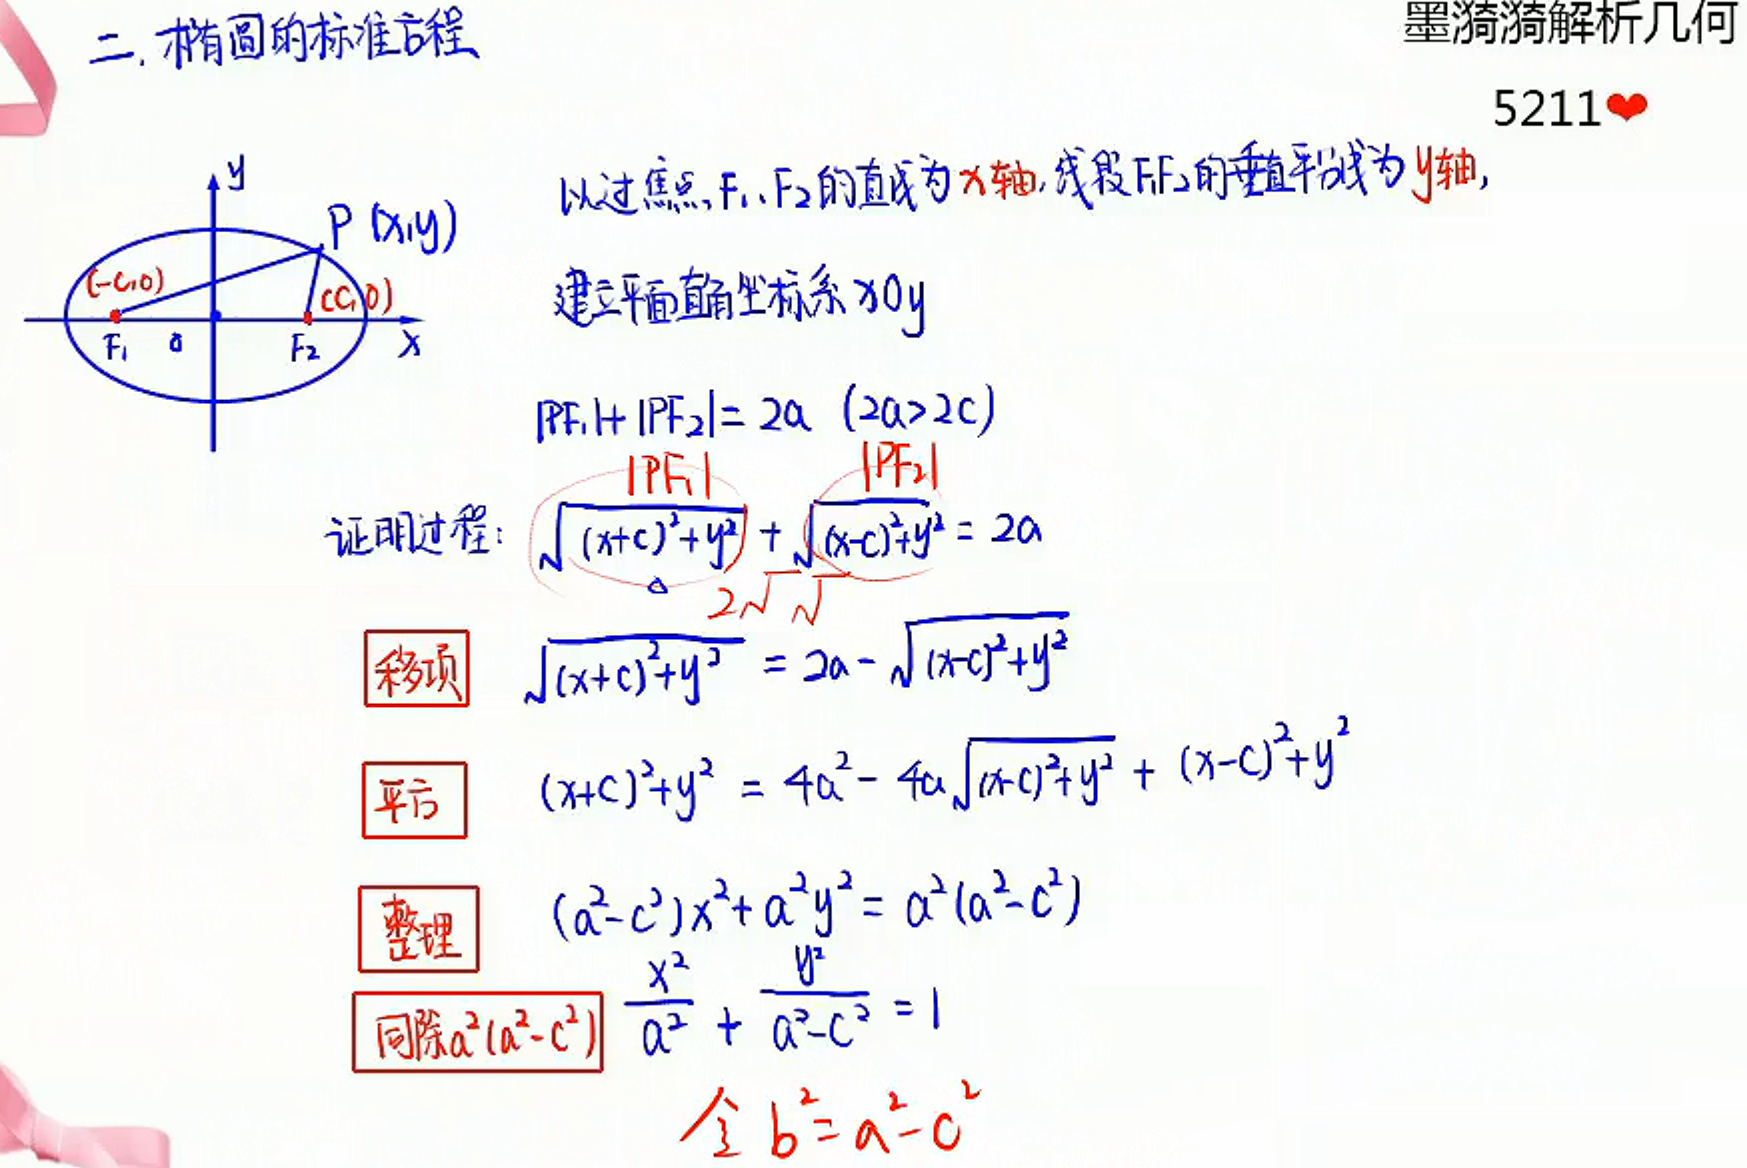 墨漪漪解析几何
5211❤
二.椭圆的标准方程
以过焦点F₁、F₂的直线为x轴,线段F₁F₂的垂直平分线为y轴,
建立平面直角坐标系xOy
y
P (x,y)
(-c,0)
(c,0)
F₁
0
F₂
x
|PF₁|+|PF₂|=2a (2a>2c)
|PF₁|
|PF₂|
证明过程: √((x+c)²+y²) + √((x-c)²+y²) = 2a
2√ √
移项 √((x+c)²+y²) = 2a-√((x-c)²+y²)
平方 (x+c)²+y² = 4a²-4a√((x-c)²+y²) + (x-c)²+y²
整理 (a²-c²)x²+a²y²=a²(a²-c²)
同除a²(a²-c²) x²/a² + y²/(a²-c²) = 1
令 b²=a²-c²